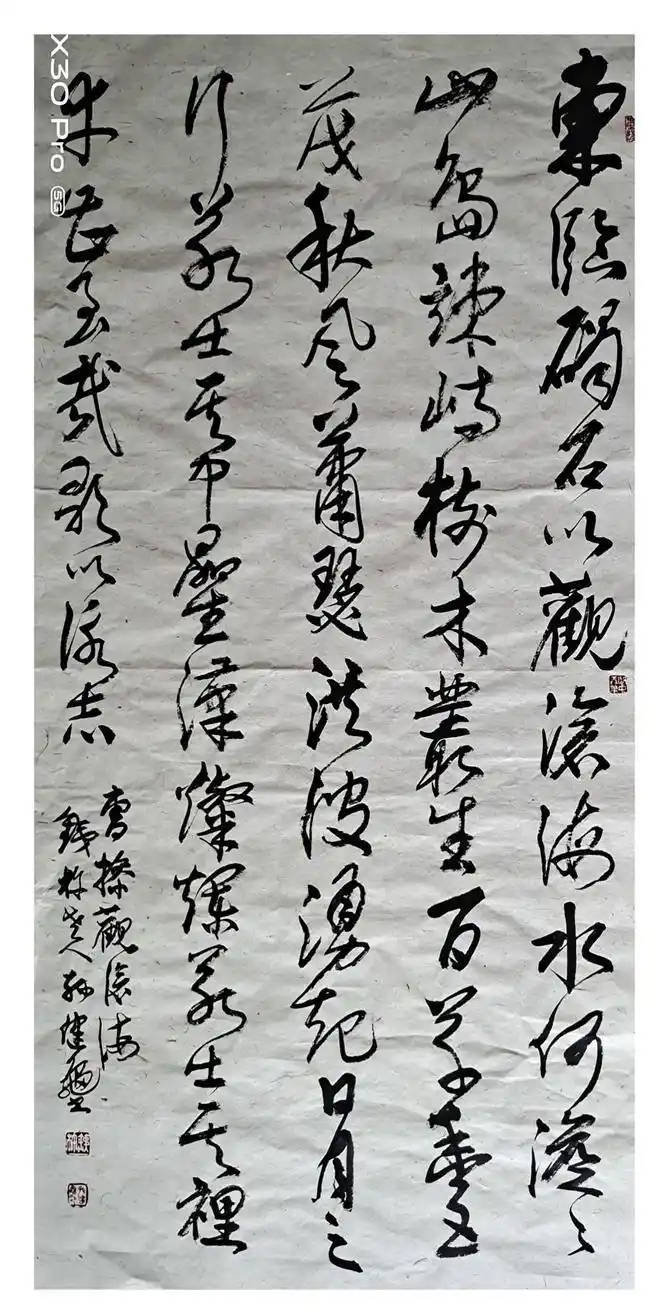 東臨碣石以觀滄海水何澹々
山島竦峙樹木叢生百草豐
茂秋風蕭瑟洪波湧起日月之
行若出其中星漢燦爛若出其裡
幸甚至哉歌以詠志
曹操觀滄海
X30 Pro 5G